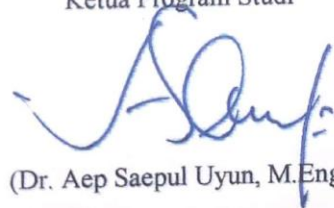 Ketua Program Studi
(Dr. Aep Saepul Uyun, M.Eng